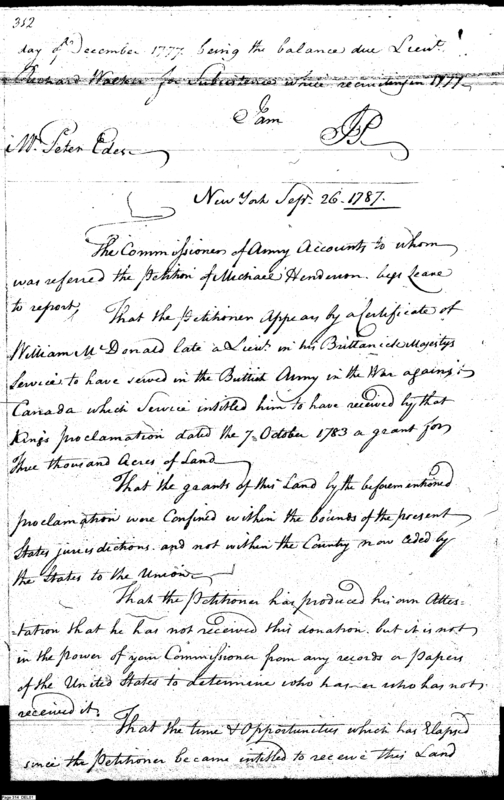 352
day of December 1777 being the balance due Lieut.
Richard Walker for Subsistence while recruiting in 1777
I am
Mr. Peter Edes
New York Sept. 26. 1787.
The Commissioner of Army Accounts to whom
was referred the Petition of Michael Henderson begs Leave
to report,
That the Petitioner Appears by a Certificate of
William McDonald late a Lieut. in his Brittanick Majestys
Service to have served in the British Army in the War against
Canada which Service intitled him to have received by that
Kings proclamation dated the 7. October 1783 a grant for
Thre thousand Acres of Land
That the grants of this Land by the beforementioned
proclamation were Confined within the bounds of the present
States jurisdictions. and not within the Country now ceded by
the States to the Union.
That the Petitioner has produced his own Attes-
-tation that he has not received this donation. but it is not
in the power of your Commissioner from any records or Papers
of the United States to determine who has or who has not
received it.
That the time & Opportunities which has Elapsed
since the Petitioner became intitled to receive this Land